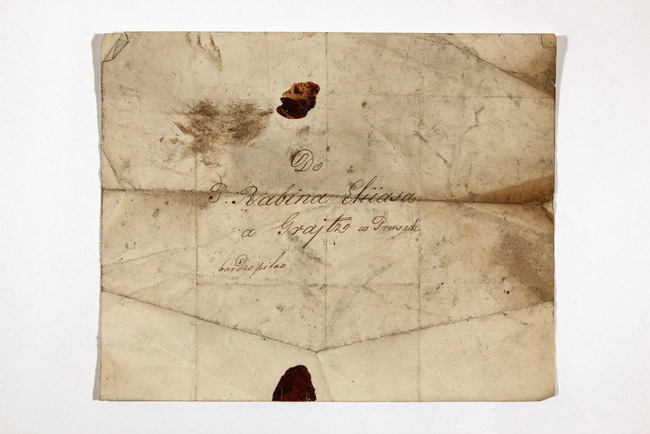 Do
P. Rabina Ekiasa
a Grajtz w Prusach
bardzo pilno